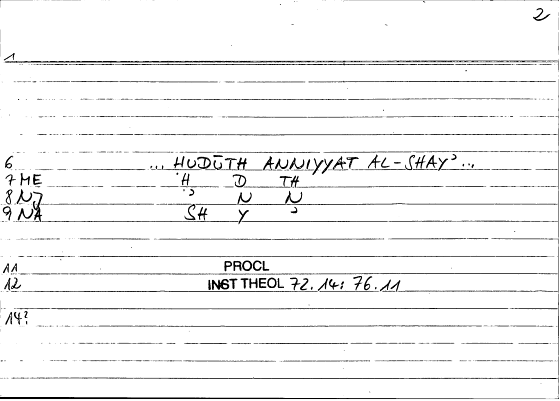 2
1
6 ... HUDŪTH ANNIYYAT AL-SHAYʾ ...
7 ME Ḥ D TH
8 NJ ʾ N N
9 NA SH Y ʾ
11 PROCL
12 INST THEOL 72.14: 76.11
14?